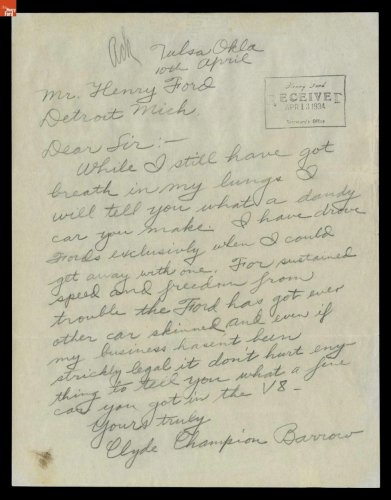 The Henry Ford
Ack
Tulsa Okla
10th April
Mr. Henry Ford
Detroit Mich.
Henry Ford
RECEIVED
APR 13 1934
Secretary's Office
Dear Sir:-
While I still have got
breath in my lungs I
will tell you what a dandy
car you make. I have drove
Fords exclusivly when I could
get away with one. For sustained
speed and freedom from
trouble the Ford has got ever
other car skinned and even if
my business hasent been
strickly legal it don't hurt eny-
thing to tell you what a fine
car you got in the V8-
Yours truly
Clyde Champion Barrow